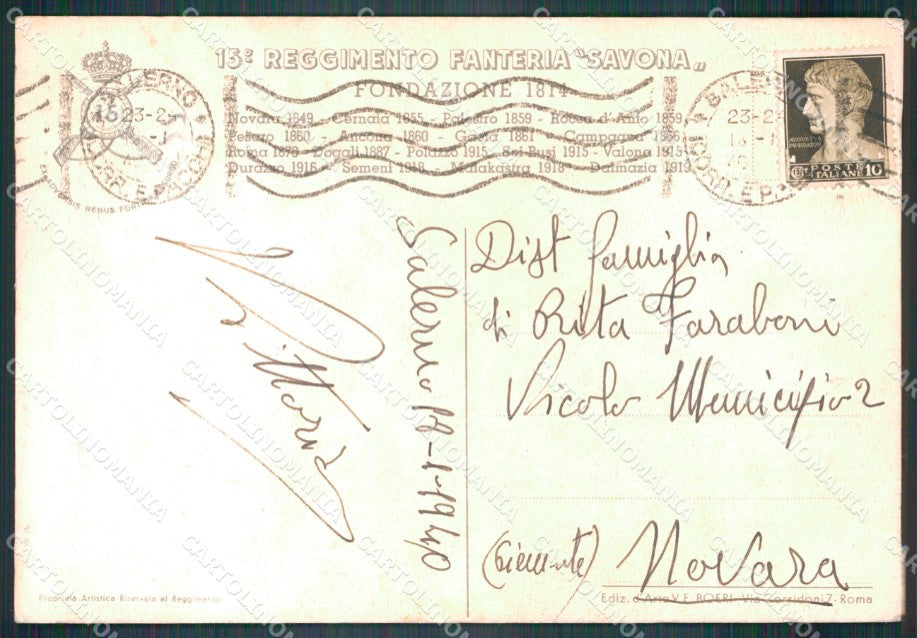 15º REGGIMENTO FANTERIA "SAVONA"
FONDAZIONE 1814
Novara 1849 - Cernaia 1855 - Palestro 1859 - Rocca d'Anfo 1859
Pesaro 1860 - Ancona 1860 - Gaeta 1861 - Campagna 1866
Roma 1870 - Dogali 1887 - Polazzo 1915 - Sei Busi 1915 - Valona 1915
Durazzo 1916 - Semeni 1918 - Malakastra 1918 - Dalmazia 1919
REBUS
SALERNO
23-24
CORR. E PACCHI
SALERNO
23-24
CORR. E
POSTE
ITALIANE 10
Vittorio
Salerno 18-1-1940
Dist famiglia
di Rita Faraboni
Vicolo Municipio 2
(Piemonte) Novara
Proprietà Artistica Riservata al Reggimento
Ediz. d'Arte V. E. BOERI - Via Corridoni 7 - Roma
CARTOLINOMANIA